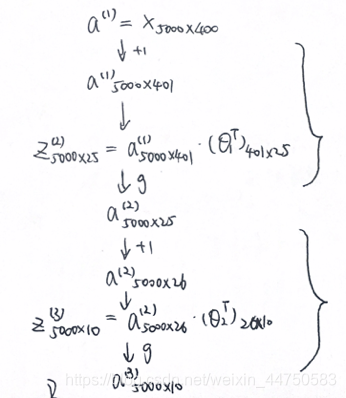 a⁽¹⁾ = X₅₀₀₀ₓ₄₀₀
↓ +1
a⁽¹⁾₅₀₀₀ₓ₄₀₁
↓
Z⁽²⁾₅₀₀₀ₓ₂₅ = a⁽¹⁾₅₀₀₀ₓ₄₀₁ · (θ₁ᵀ)₄₀₁ₓ₂₅
↓ g
a⁽²⁾₅₀₀₀ₓ₂₅
↓ +1
a⁽²⁾₅₀₀₀ₓ₂₆
↓
Z⁽³⁾₅₀₀₀ₓ₁₀ = a⁽²⁾₅₀₀₀ₓ₂₆ · (θ₂ᵀ)₂₆ₓ₁₀
↓ g
a⁽³⁾₅₀₀₀ₓ₁₀
https://blog.csdn.net/weixin_44750583